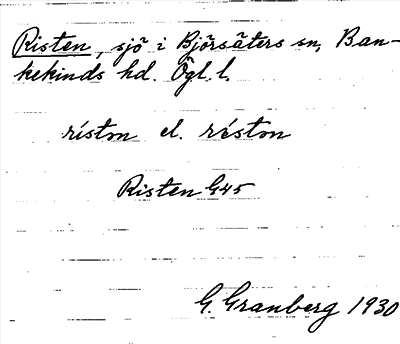 Risten, sjö i Björsäters sn, Ban-
kekinds hd. Ögl. l.
ríston el. réston
Risten G45
G. Granberg 1930